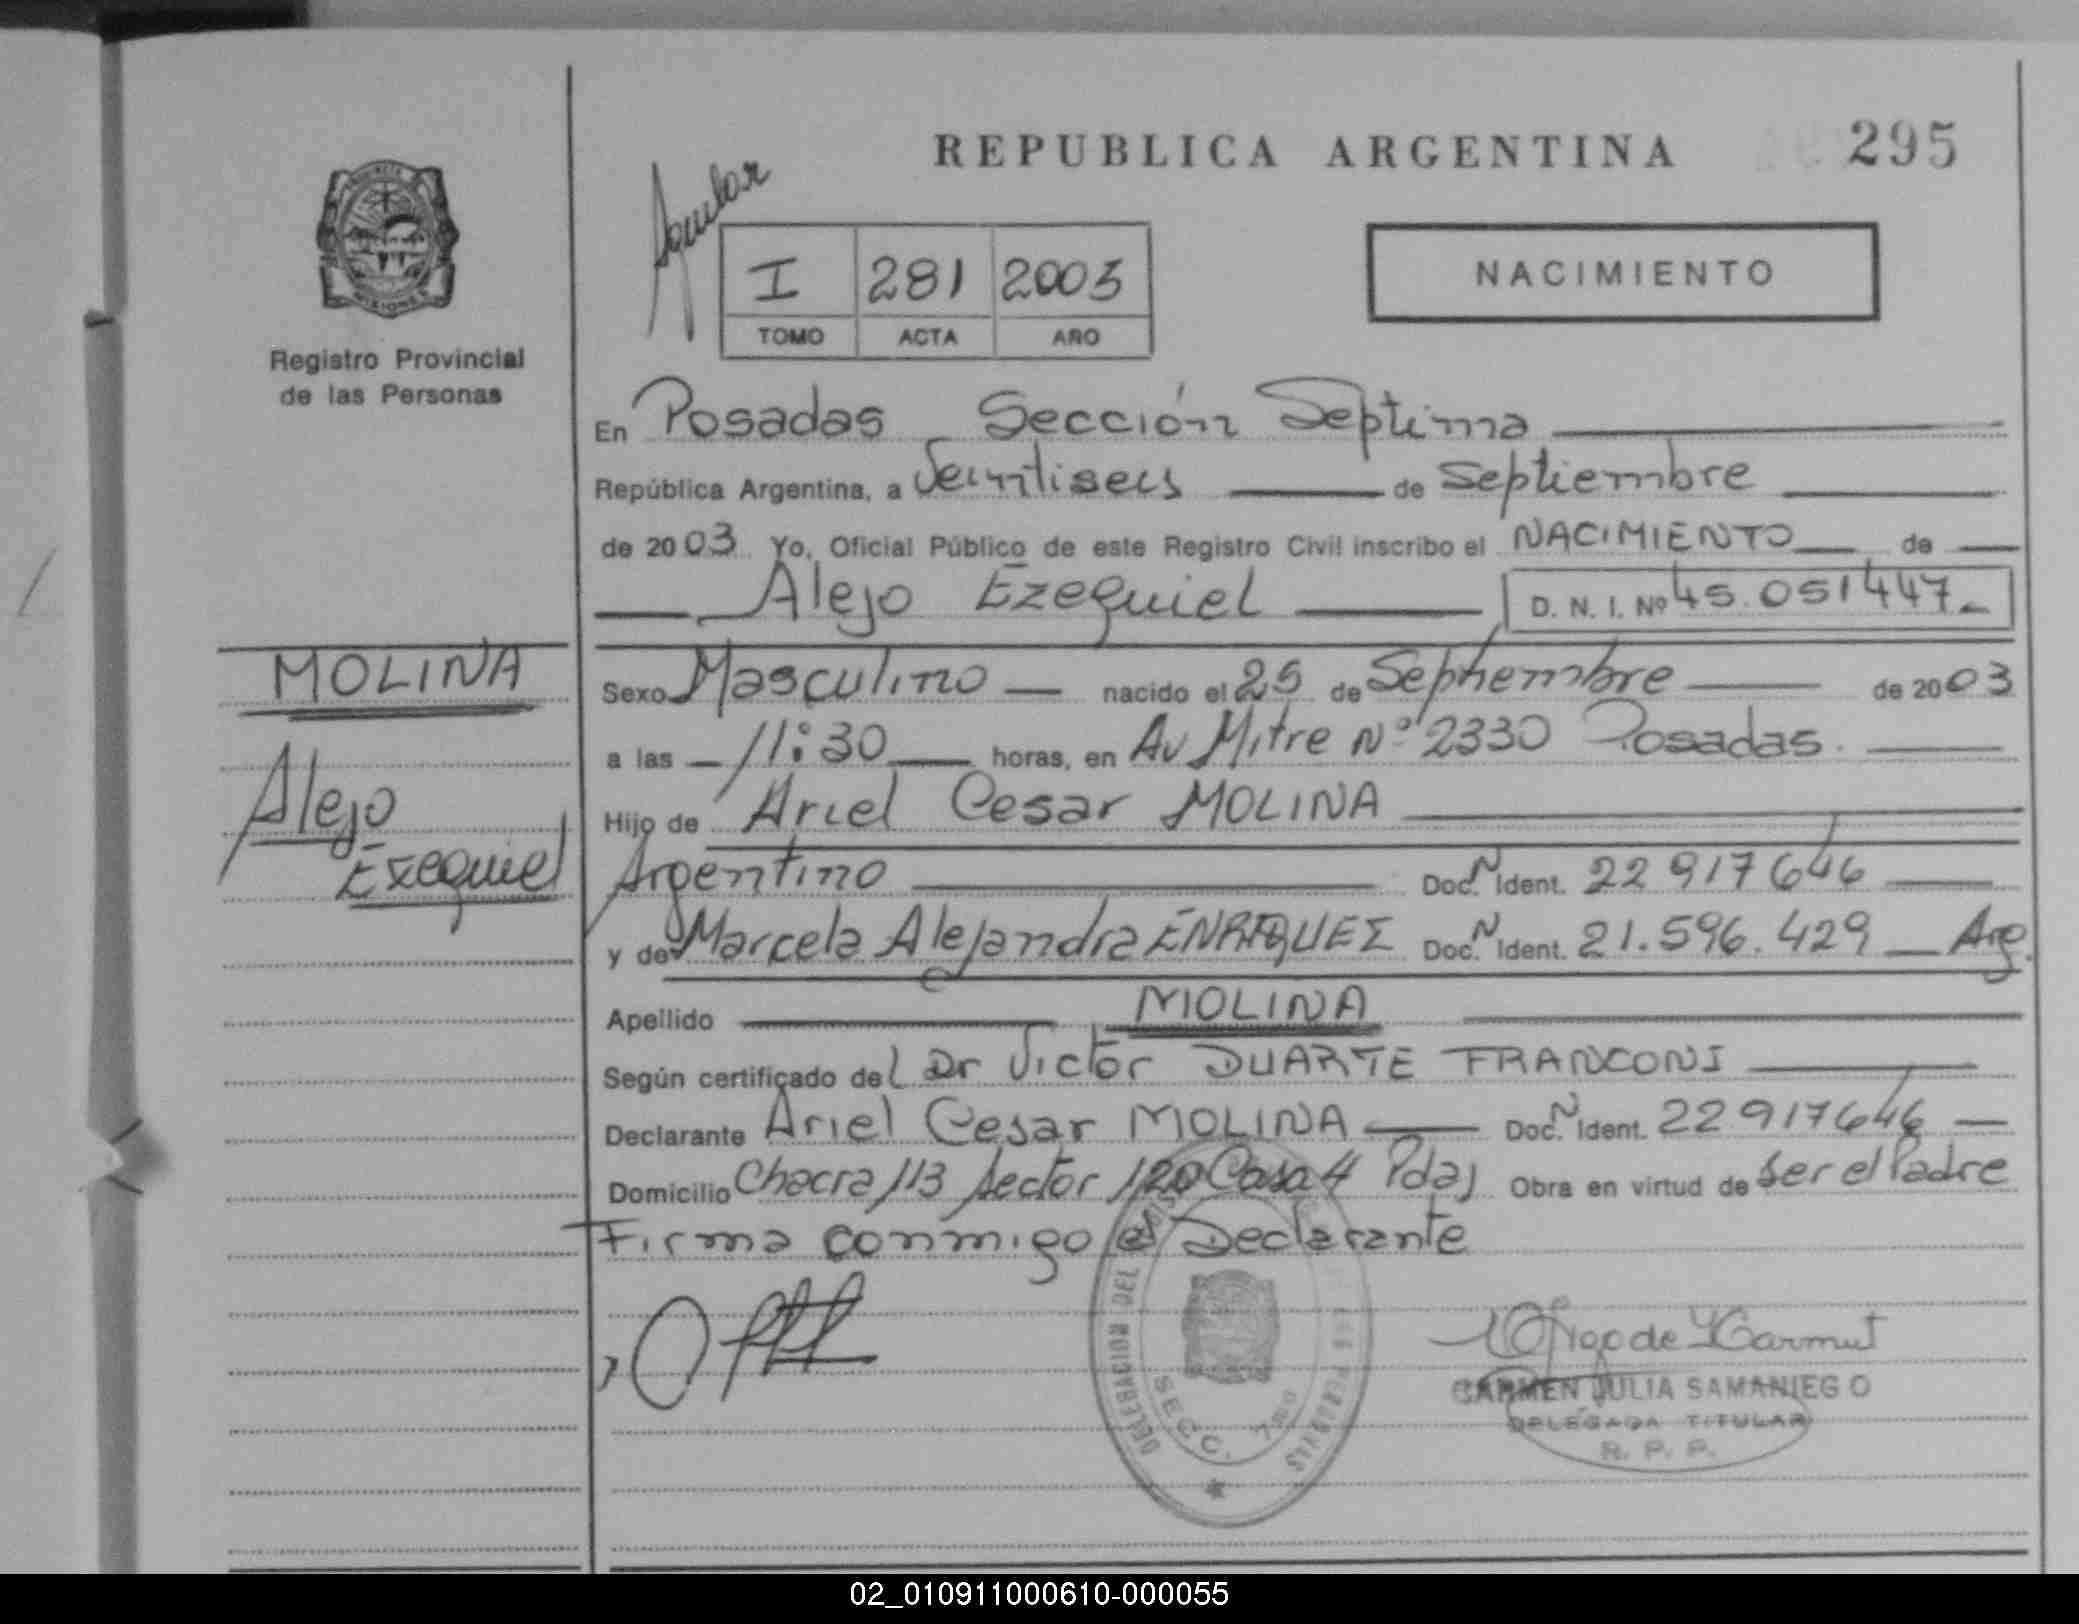 REPUBLICA ARGENTINA
295
Aguilar
I 281 2003
TOMO ACTA AÑO
NACIMIENTO
Registro Provincial
de las Personas
En Posadas Sección Septima
República Argentina, a Veintiseis de Septiembre
de 2003 Yo, Oficial Público de este Registro Civil inscribo el NACIMIENTO de
Alejo Ezequiel D. N. I. Nº 45.051447
MOLINA
Alejo
Ezequiel
Sexo Masculino nacido el 25 de Septiembre de 2003
a las 11:30 horas, en Av Mitre Nº 2330 Posadas.
Hijo de Ariel Cesar MOLINA
Argentino Doc. N Ident. 22 917 646
y de Marcela Alejandra ENRIQUEZ Doc. N Ident. 21.596.429 Arg.
Apellido MOLINA
Según certificado del Dr Victor DUARTE FRANCONI
Declarante Ariel Cesar MOLINA Doc. N Ident. 22 917646
Domicilio Chacra 113 Sector 120 Casa 4 Pdas Obra en virtud de Ser el Padre
Firma conmigo el Declarante
DELEGACION DEL
LAS PERSONAS
SECC. 7
CARMEN JULIA SAMANIEGO
DELEGADA TITULAR
R. P. P.
02_010911000610-000055